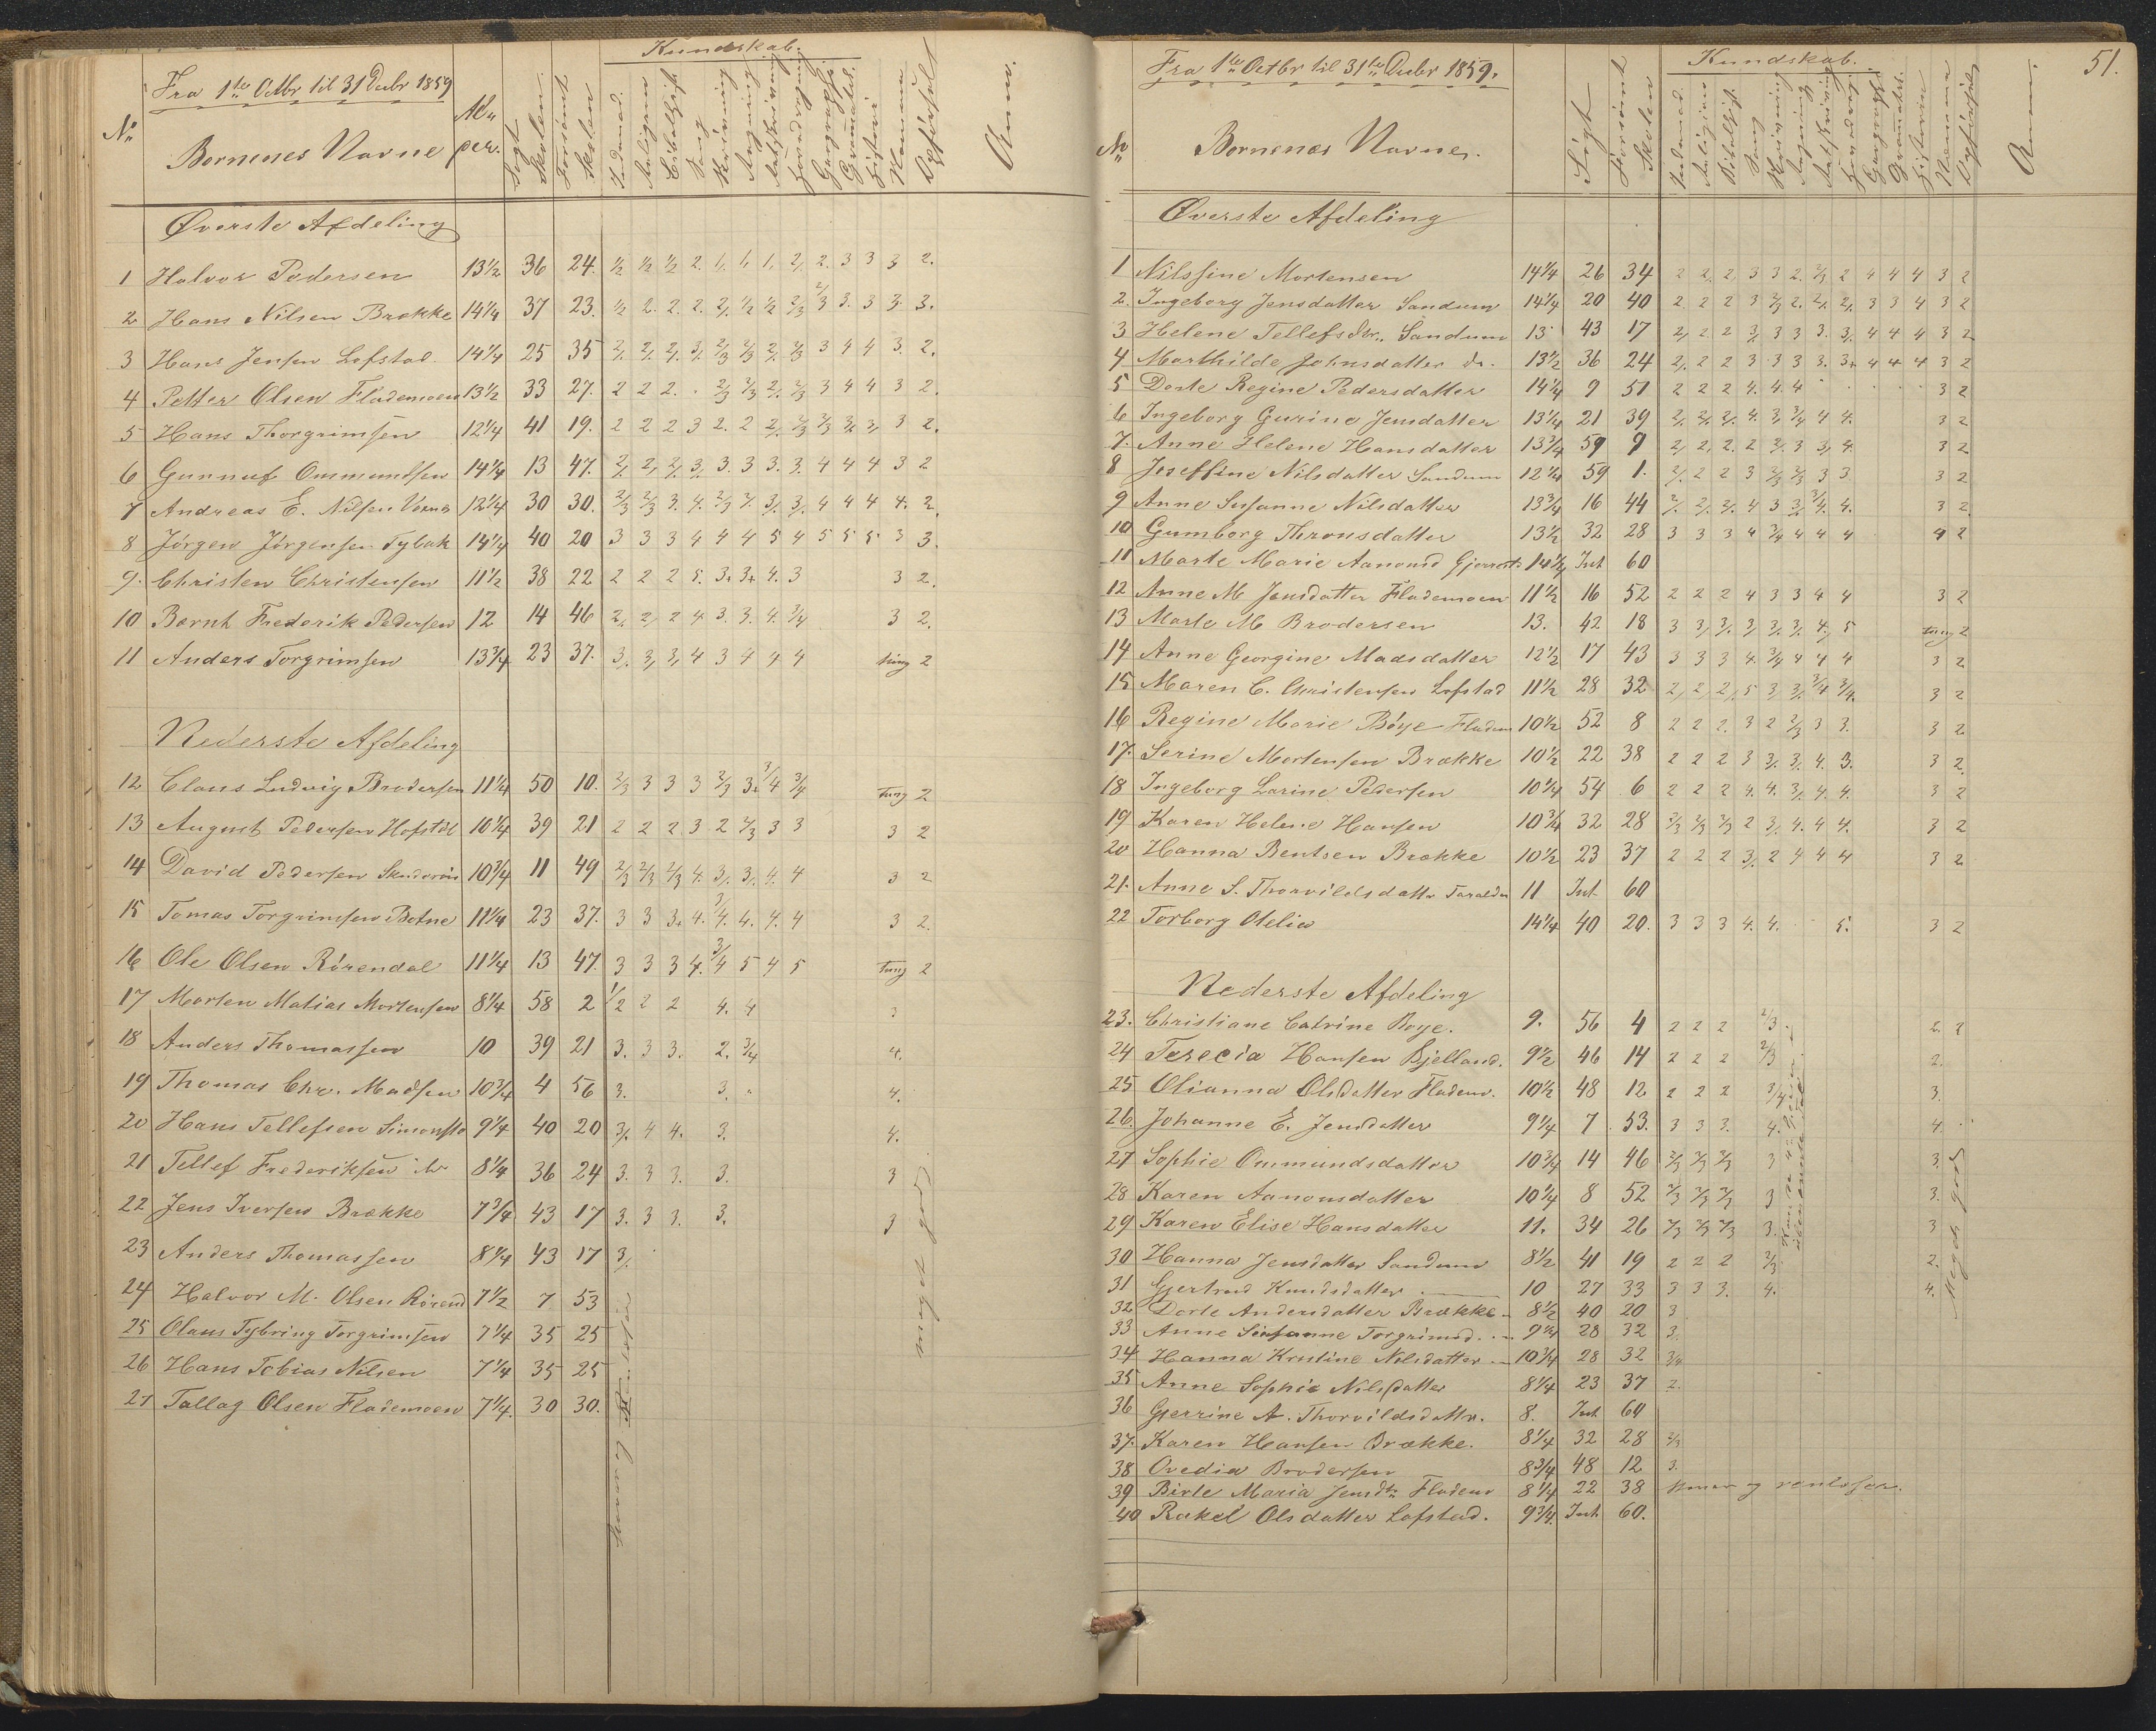 Fra 1ste Octbr til 31 Decbr 1859
No
Børnenes Navne
Al-
der.
Søgt Skolen
Forsømt Skolen
Kundskab.
Indenad.
Religion
Bibelhist.
Sang
Skrivning
Regning
Retskrivning
Hovedregning
Geographi.
Gramatik.
Historie
Nemme
Opførsel
Anm.
Øverste Afdeling
1 Halvor Pedersen 13½ 36 24. ½ ½ ½ 2. 1, 1, 1, 2, 2. 3 3 3 2.
2 Hans Nilsen Brække 14¼ 37 23. ½ 2. 2. 2. 2, ½ ½ 2/3 2/3 3. 3 3. 3.
3 Hans Jensen Lofstad 14¼ 25 35 2, 2, 2, 3, 2/3 2/3 2, 2/3 3 4 4 3. 2.
4 Petter Olsen Flademoen 13½ 33 27. 2 2 2. . 2/3 2/3 2, 2/3 3 4 4 3 2.
5 Hans Thorgrimsen 12¼ 41 19. 2 2 2 3 2. 2 2, 2/3 2/3 3, 3, 3 2.
6 Gunnuf Ommundsen 14¼ 13 47. 2, 2, 2, 3, 3. 3 3. 3. 4 4 4 3 2
7 Andreas E. Nilsen 12¼ 30 30. 2/3 2/3 3. 4. 2/3 3, 3, 4 4 4 4. 2.
8 Jörgen Jörgensen Tybak 14¼ 40 20 3 3 3 4 4 4 5 4 5 5 5 3 3.
9. Christen Christensen 11½ 38 22 2 2 2 5. 3+ 3+ 4. 3 3 2.
10 Bernt Frederik Pedersen 12 14 46 2, 2, 2 4 3. 3. 4. ¾ 3 2.
11 Anders Torgrimsen 13¾ 23 37. 3, 3, 3, 4 3 4 4 4 tung 2
Nederste Afdeling
12 Claus Ludvig Brodersen 11¼ 50 10. 2/3 3 3 3 2/3 3+ ¾ ¾ tung 2
13 August Pedersen 10¼ 39 21 2 2 2 3 2 2/3 3 3 3 2
14 David Pedersen 10¾ 11 49 2/3 2/3 2/3 4. 3, 3, 4. 4 3 2
15 Tomas Torgrimsen Botne 11¼ 23 37. 3 3 3+ 4. ¾. 4. 4. 4 3 2.
16 Ole Olsen Rörendal 11¼ 13 47. 3 3 3 4. ¾ 5 4 5 tung 2
17 Morten Matias Mortensen 8¼ 58 2 ½ 2 2 4. 4 3
18 Anders Thomassen 10 39 21 3. 3 3. 2. ¾ 4.
19 Thomas Chr. Madsen 10¾ 4 56 3. 3. 4.
20 Hans Tellefsen 9¼ 40 20 3, 4 4. 3. 4.
21 Tellef Frederiksen 8¼ 36 24 3. 3 3. 3. 3
22 Jens Iversen Brække 7¾ 43 17 3. 3 3. 3. 3
23 Anders Thomassen 8¼ 43 17 3,
24 Halvor M. Olsen Rörend 7½ 7 53
25 Olaus Tybring Torgrimsen 7¼ 35 25
26 Hans Tobias Nilsen 7¼ 35 25
27 Tallag Olsen Flademoen 7¼. 30 30.
meget godt
51.
Fra 1ste Octbr til 31te Decbr 1859.
No
Børnenes Navne.
Søgt
Forsømt Skolen
Kundskab.
Indenad.
Religion
Bibelhist.
Sang
Skrivning
Regning
Retskrivning
Hovedregn
Geographi
Gramatik.
Historie
Nemme
Opførsel
Anm.
Øverste Afdeling
1 Nilssine Mortensen 14¼ 26 34 2 2, 2, 3 3 2. 2/3 2 4 4 4 3 2
2. Ingeborg Jensdatter Sandum 14¼ 20 40 2 2 2 3 2/3 2. 2, 2, 3 3 4 3 2
3 Helene Tellefsdtr. Sandum 13 43 17 2, 2 2 3, 3 3 3. 3, 4 4 4 3 2
4 Marthilde Johnsdatter do. 13½ 36 24 2, 2 2 3 3 3 3. 3+ 4 4 4 3 2
5 Dorte Regine Pedersdatter 14¼ 9 51 2 2 2 4. 4. 4 3 2
6 Ingeborg Gurine Jensdatter 13¼ 21 39 2, 2, 2, 4. 3, ¾ 4 4. 3 2
7. Anne Helene Hansdatter 13¾ 59 9 2, 2, 2. 2 2, 3 3, 4. 3 2
8 Joseffine Nilsdatter Sandum 12¼ 59 1. 2, 2 2 3 2/3 2/3 3 3 3 2
9 Anne Susanne Nilsdatter 13¾ 16 44 2, 2, 2, 4 3 3, ¾. 4. 3 2.
10 Gumborg Thronsdatter 13½ 32 28 3 3 3 4 ¾ 4 4 4 4 2
11 Marte Marie Aanonsd 14¼ Int 60
12 Anne M Jensdatter Flademoen 11½ 16 52 2 2 2 4 3 3 4 4 3 2
13 Marte M Brodersen 13. 42 18 3 3, 3, 3, 3, 3, 4, 5 tung 2
14 Anne Georgine Madsdatter 12½ 17 43 3 3 3 4. ¾ 4 4 4 3 2
15 Maren C. Christensen Lofstad 11½ 28 32 2, 2, 2, 5 3 3, ¾ ¾. 3 2
16 Regine Marie Böye Fladem 10½ 52 8 2 2 2. 3 2 2/3 3 3. 3 2
17. Serine Mortensen Brække 10½ 22 38 2 2 2 3 3, 3, 4. 3. 3 2.
18 Ingeborg Larine Pedersen 10¼ 54 6 2 2 2 4. 4. 3, 4. 4. 3 2
19 Karen Helene Hansen 10¾ 32 28 2/3 2/3 2/3 2 3, 4. 4 4. 3 2
20 Hanna Bentsen Brække 10½ 23 37 2 2 2 3, 2 4 4 4 3 2
21. Anne S. Thorvildsdattr 11 Int 60
22 Torborg Otelia 14¼ 40 20. 3 3 3 4. 4. 5. 3 2
Nederste Afdeling
23. Christiane Catrine Boye. 9. 56 4 2 2 2 2/3 2. 2
24 Terecia Hansen Kjelland. 9½ 46 14 2 2 2 2/3 2.
25 Olianna Olsdatter Fladem. 10½ 48 12 2 2 2 ¾ 3.
26. Johanne E. Jensdatter 9¼ 7 53. 3 3 3. 4. 4.
27 Sophie Ommundsdatter 10¾ 14 46 2/3 2/3 2/3 3 3.
28 Karen Aanonsdatter 10¼ 8 52 2/3 2/3 2/3 3 3.
29 Karen Elise Hansdatter 11. 34 26 2/3 2/3 2/3 3. 3
30 Hanna Jensdatter Sandum 8½ 41 19 2 2 2 2/3 2.
31 Gjertrud Knudsdatter 10 27 33 3 3 3. 4. 4.
32 Dorte Andersdatter Brække 8½ 40 20 3
33 Anne Susanne Torgrimsd. 9¼ 28 32 3.
34 Hanna Kristine Nilsdatter 10¾ 28 32 ¾
35 Anne Sophie Nilssdatter 8¼ 23 37 2.
36 Gjerrine A. Thorvildsdattr. 8. Int 60
37. Karen Hansen Brække. 8¼ 32 28 2/3
38 Ovedia Brodersen 8¾ 48 12 3.
39 Birte Maria Jensdtr Fladem 8¼ 22 38
40 Rakel Olsdatter Lofstad. 9¾. Int 60.
Meget godt